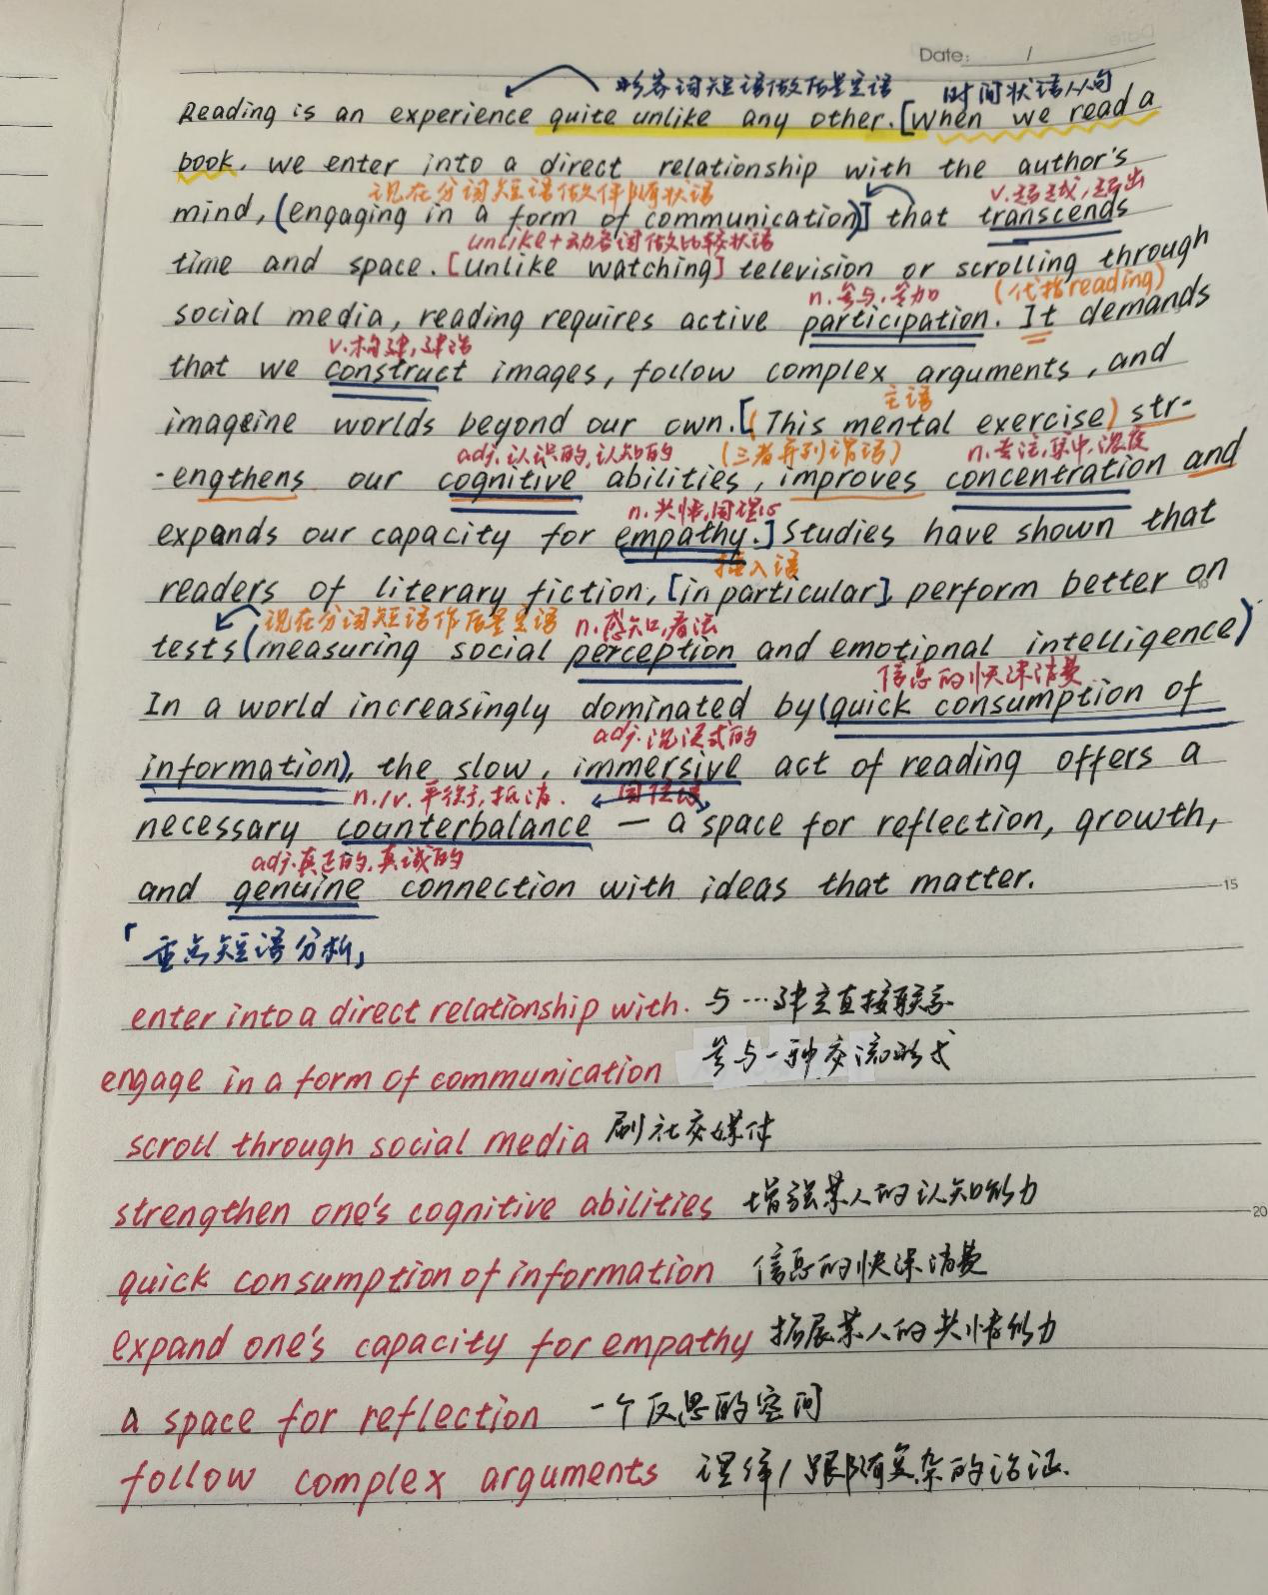 Date: /
形容词短语做后置定语 时间状语从句
Reading is an experience quite unlike any other. [When we read a
book, we enter into a direct relationship with the author's
现在分词短语做伴随状语 v.超越,超出
mind, (engaging in a form of communication)] that transcends
unlike+动名词做比较状语
time and space. [unlike watching] television or scrolling through
n.参与,参加 (代指reading)
social media, reading requires active participation. It demands
v.构建,建造
that we construct images, follow complex arguments, and
主语
imageine worlds beyond our own. [(This mental exercise) str-
adj.认识的,认知的 (三者并列谓语) n.专注,集中,浓度
-engthens our cognitive abilities, improves concentration and
n.共情,同理心
expands our capacity for empathy.] Studies have shown that
插入语
readers of literary fiction, [in particular], perform better on
现在分词短语作后置定语 n.感知,看法
tests (measuring social perception and emotional intelligence)
信息的快速消费
In a world increasingly dominated by (quick consumption of
adj.沉浸式的
information), the slow, immersive act of reading offers a
n./v.平衡,抵消. 同位语
necessary counterbalance — a space for reflection, growth,
adj.真正的,真诚的
and genuine connection with ideas that matter.
15
「重点短语分析」
enter into a direct relationship with. 与…建立直接联系
engage in a form of communication 参与一种交流形式
scroll through social media 刷社交媒体
strengthen one's cognitive abilities 增强某人的认知能力
20
quick consumption of information 信息的快速消费
expand one's capacity for empathy 拓展某人的共情能力
a space for reflection 一个反思的空间
follow complex arguments 理解/跟随复杂的论证.